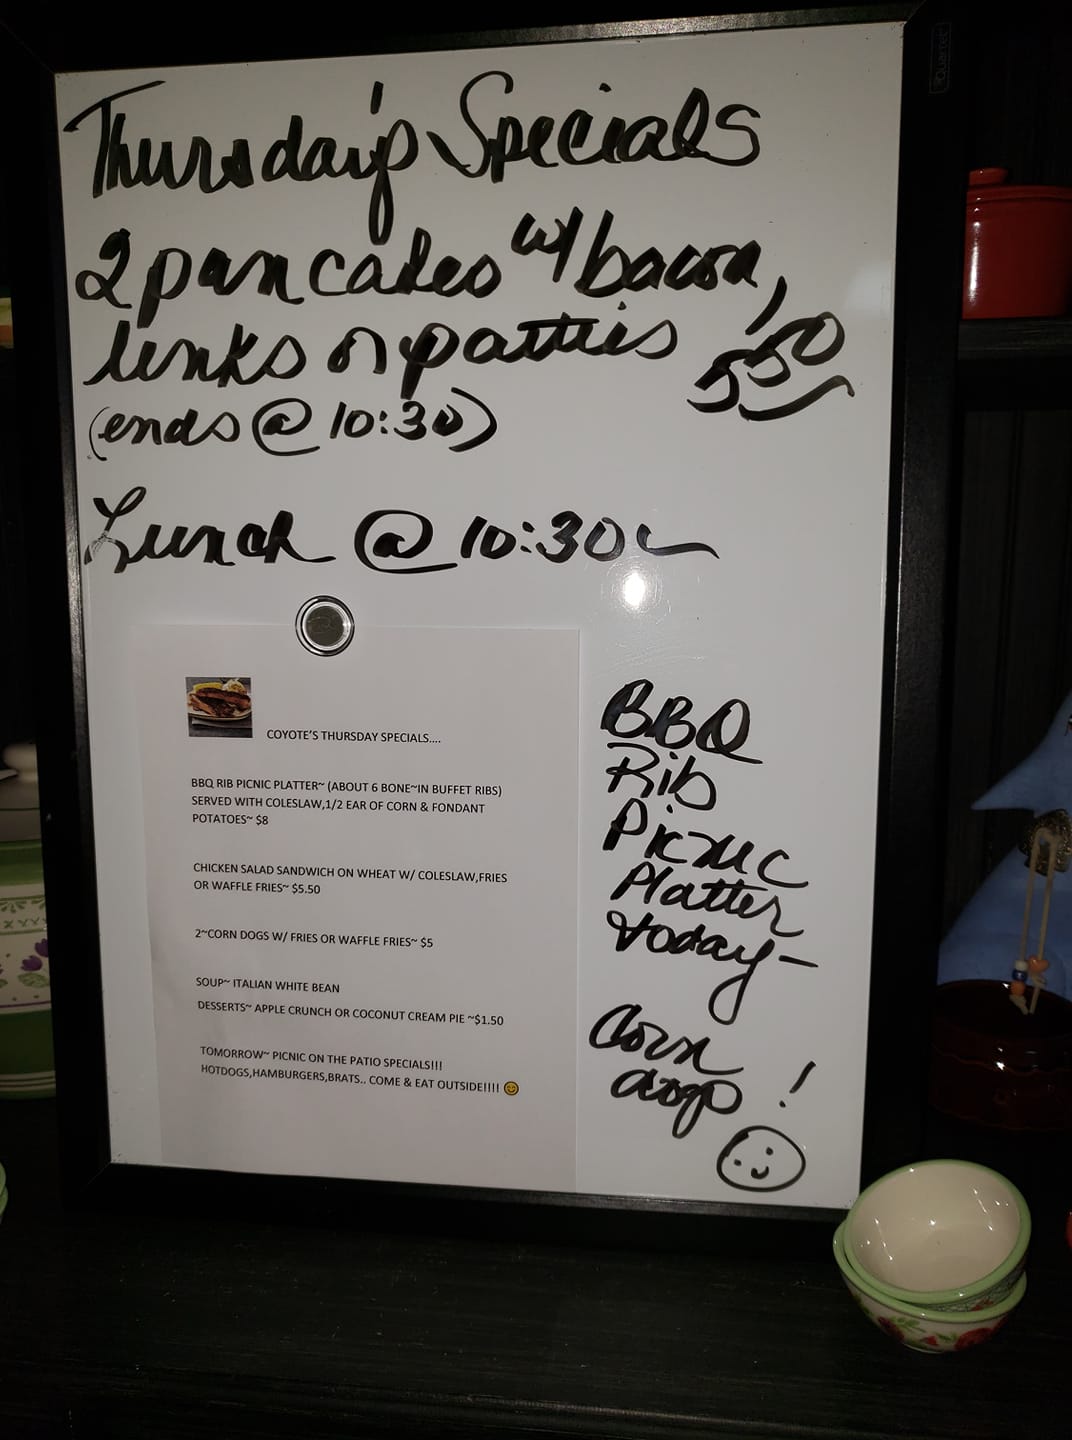 Quartet
Thursday's Specials
2 pancakes w/ bacon,
links or patties 5.50
(ends @ 10:30)
Lunch @ 10:30
COYOTE'S THURSDAY SPECIALS....
BBQ RIB PICNIC PLATTER~ (ABOUT 6 BONE~IN BUFFET RIBS)
SERVED WITH COLESLAW,1/2 EAR OF CORN & FONDANT
POTATOES~ $8
CHICKEN SALAD SANDWICH ON WHEAT W/ COLESLAW,FRIES
OR WAFFLE FRIES~ $5.50
2~CORN DOGS W/ FRIES OR WAFFLE FRIES~ $5
SOUP~ ITALIAN WHITE BEAN
DESSERTS~ APPLE CRUNCH OR COCONUT CREAM PIE ~$1.50
TOMORROW~ PICNIC ON THE PATIO SPECIALS!!!
HOTDOGS,HAMBURGERS,BRATS.. COME & EAT OUTSIDE!!!! 😊
BBQ
Rib
Picnic
Platter
today-
Corn
dogs !